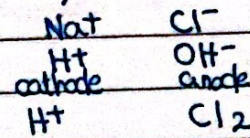 Na+ Cl-
H+ OH-
cathode anode
H+ Cl2